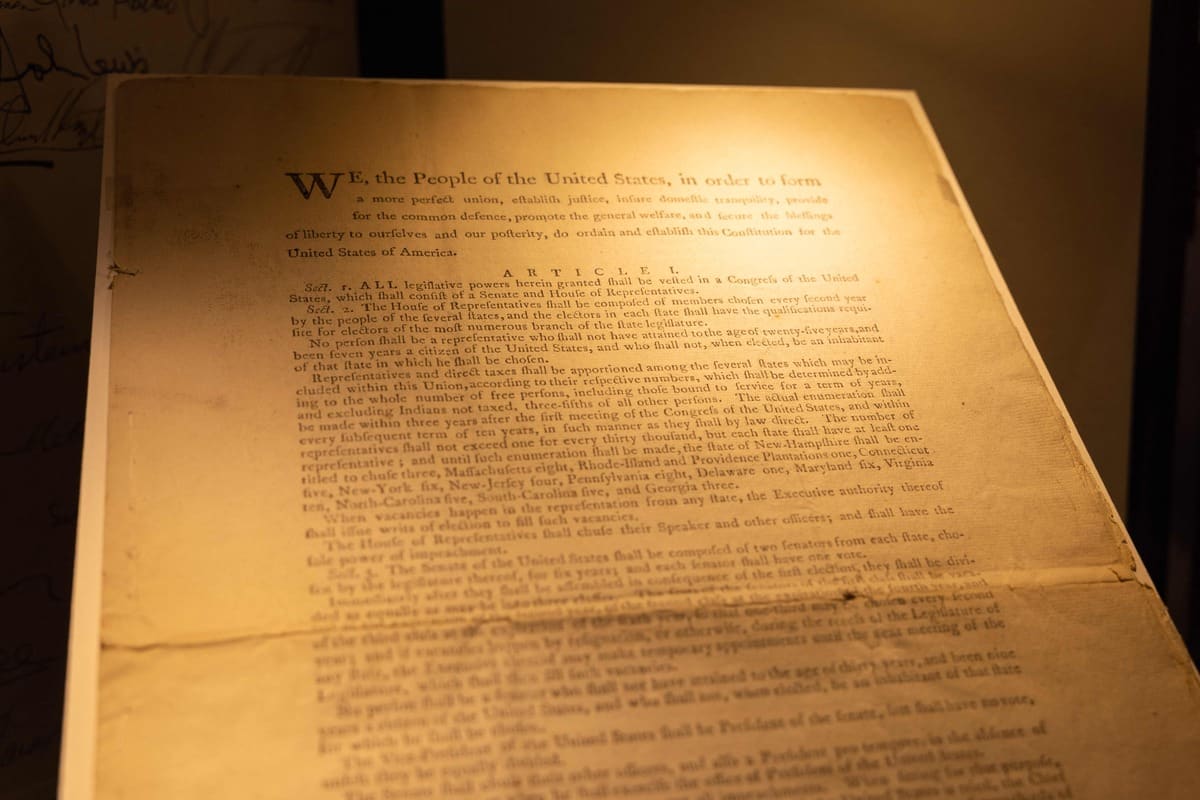 John Lewis
WE, the People of the United States, in order to form
a more perfect union, eſtabliſh juſtice, inſure domeſtic tranquility, provide
for the common defence, promote the general welfare, and ſecure the bleſſings
of liberty to ourſelves and our poſterity, do ordain and eſtabliſh this Conſtitution for the
United States of America.
ARTICLE I.
Sect. 1. ALL legiſlative powers herein granted ſhall be veſted in a Congreſs of the United
States, which ſhall conſiſt of a Senate and Houſe of Repreſentatives.
Sect. 2. The Houſe of Repreſentatives ſhall be compoſed of members choſen every ſecond year
by the people of the ſeveral ſtates, and the electors in each ſtate ſhall have the qualifications requi-
ſite for electors of the moſt numerous branch of the ſtate legiſlature.
No perſon ſhall be a repreſentative who ſhall not have attained to the age of twenty-five years, and
been ſeven years a citizen of the United States, and who ſhall not, when elected, be an inhabitant
of that ſtate in which he ſhall be choſen.
Repreſentatives and direct taxes ſhall be apportioned among the ſeveral ſtates which may be in-
cluded within this Union, according to their reſpective numbers, which ſhall be determined by add-
ing to the whole number of free perſons, including thoſe bound to ſervice for a term of years,
and excluding Indians not taxed, three-fifths of all other perſons. The actual enumeration ſhall
be made within three years after the firſt meeting of the Congreſs of the United States, and within
every ſubſequent term of ten years, in ſuch manner as they ſhall by law direct. The number of
repreſentatives ſhall not exceed one for every thirty thouſand, but each ſtate ſhall have at leaſt one
repreſentative; and until ſuch enumeration ſhall be made, the ſtate of New-Hampſhire ſhall be en-
titled to chuſe three, Maſſachuſetts eight, Rhode-Iſland and Providence Plantations one, Connecticut
five, New-York ſix, New-Jerſey four, Pennſylvania eight, Delaware one, Maryland ſix, Virginia
ten, North-Carolina five, South-Carolina five, and Georgia three.
When vacancies happen in the repreſentation from any ſtate, the Executive authority thereof
ſhall iſſue writs of election to fill ſuch vacancies.
The Houſe of Repreſentatives ſhall chuſe their Speaker and other officers; and ſhall have the
ſole power of impeachment.
Sect. 3. The Senate of the United States ſhall be compoſed of two ſenators from each ſtate, cho-
ſen by the legiſlature thereof, for ſix years; and each ſenator ſhall have one vote.
Immediately after they ſhall be aſſembled in conſequence of the firſt election, they ſhall be divi-
ded as equally as may be into three claſſes.
of the third claſs at the expiration of the ſixth year, ſo that one-third may be choſen every ſecond
year; and if vacancies happen by reſignation, or otherwiſe, during the receſs of the Legiſlature of
any ſtate, the Executive thereof may make temporary appointments until the next meeting of the
Legiſlature, which ſhall then fill ſuch vacancies.
No perſon ſhall be a ſenator who ſhall not have attained to the age of thirty years, and been nine
years a citizen of the United States, and who ſhall not, when elected, be an inhabitant of that ſtate
for which he ſhall be choſen.
The Vice-Preſident of the United States ſhall be Preſident of the ſenate, but ſhall have no vote,
unleſs they be equally divided.
The Senate ſhall chuſe their other officers, and alſo a Preſident pro tempore, in the abſence of